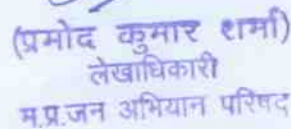 (प्रमोद कुमार शर्मा)
लेखाधिकारी
म.प्र.जन अभियान परिषद